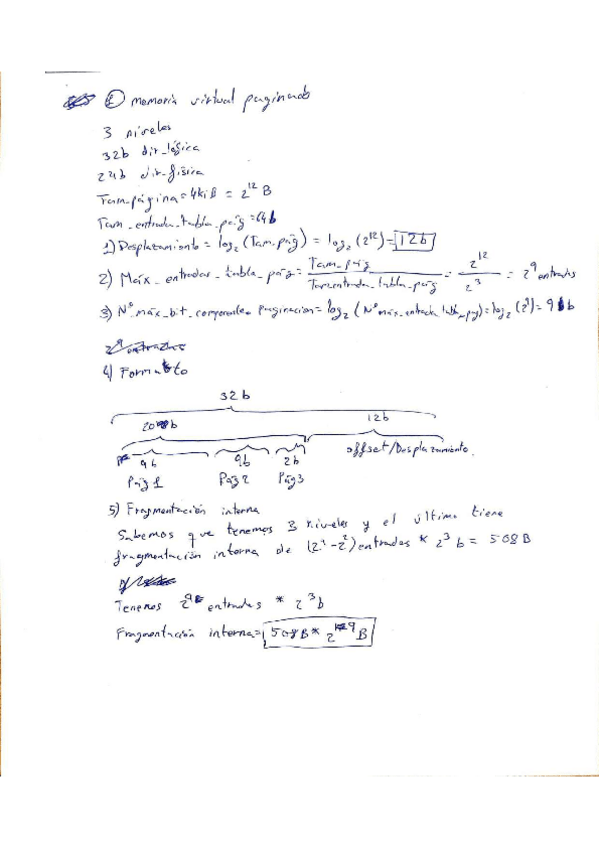 ② memoria virtual paginado
3 niveles
32b dir_lógica
24b dir_física
Tam_página = 4KiB = 2^12 B
Tam_entrada_tabla_pág = 64b
1) Desplazamiento = log₂ (Tam_pág) = log₂ (2^12) = 12b
2) Máx_entradas_tabla_pág = Tam_pág / Tam_entrada_tabla_pág = 2^12 / 2^3 = 2^9 entradas
3) Nº_máx_bit_componente paginacion = log₂ (Nº máx_entrada tabla_pg) = log₂ (2^9) = 9b
2^9 entradas
4) Formato
32b
20b 12b
9b 9b 2b offset/Desplazamiento
Pág 1 Pág 2 Pág 3
5) Fragmentación interna
Sabemos que tenemos 3 niveles y el último tiene
fragmentación interna de (2^9-2^2) entradas * 2^3 b = 508B
Tenemos 2^9 entradas * 2^3 b
Fragmentación interna = 508B * 2^9 B